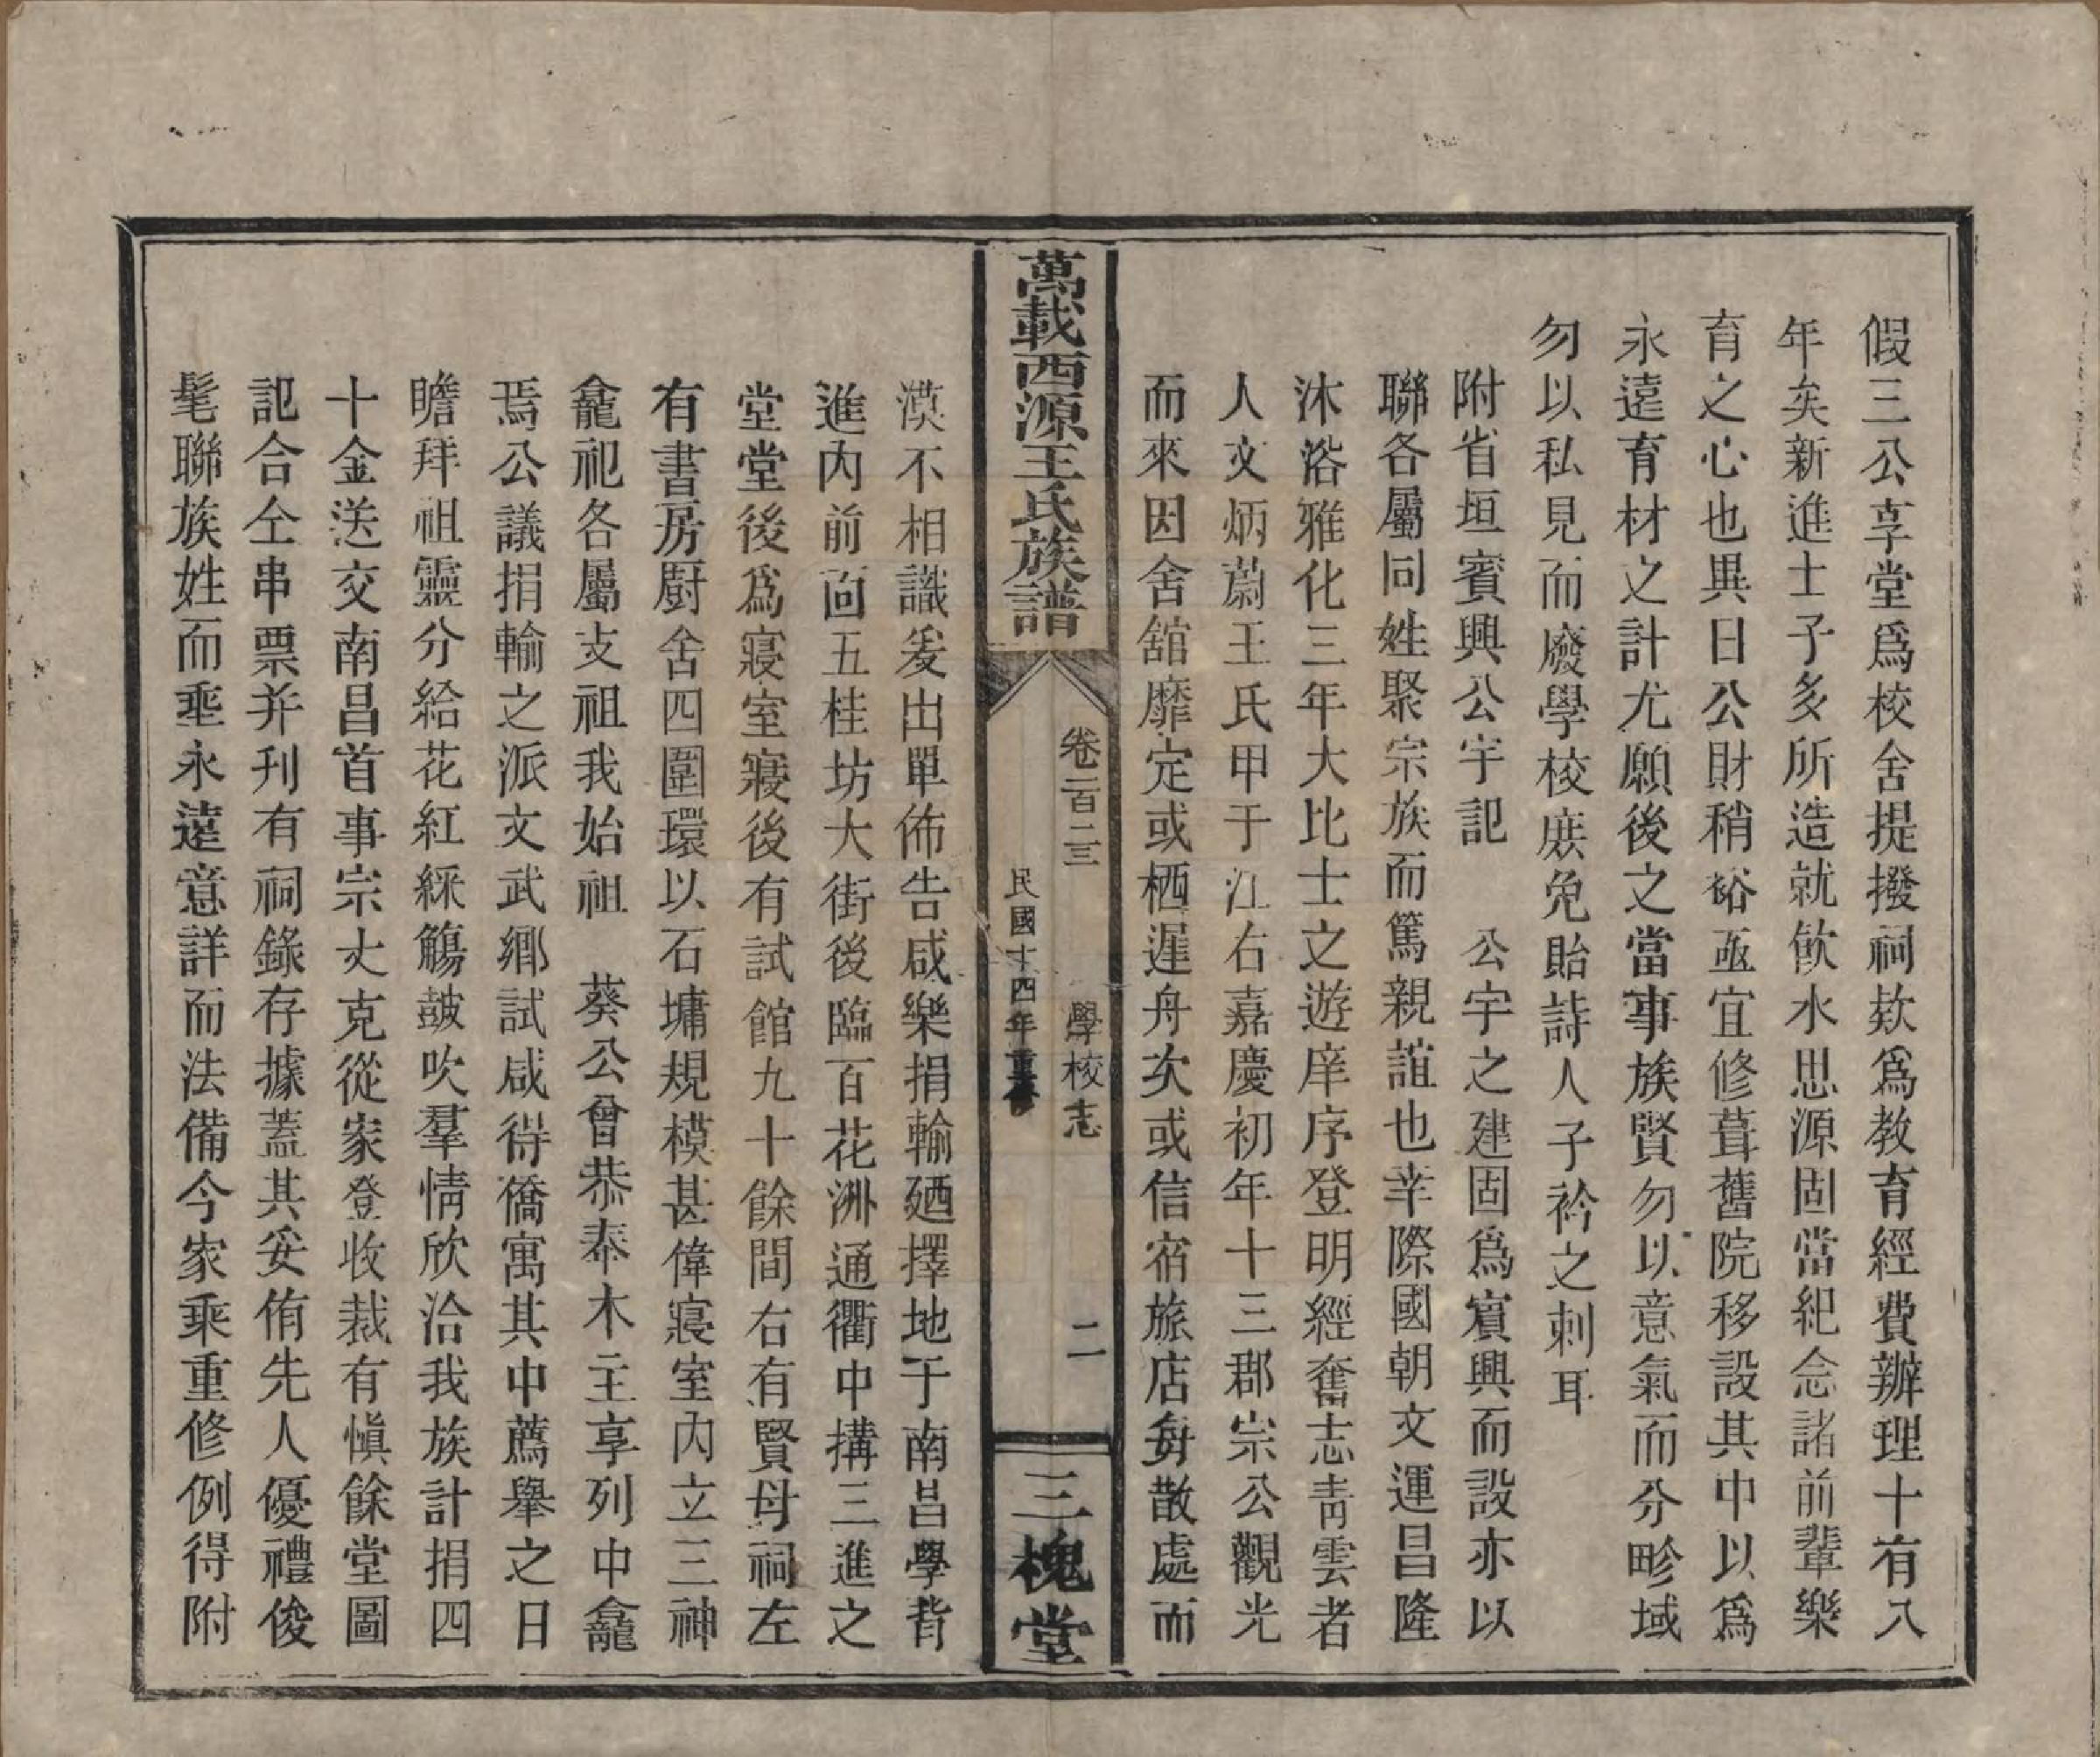 假三公享堂爲校舍提撥祠欵爲教育經費辦理十有八
年矣新進士子多所造就飲水思源固當紀念諸前輩樂
育之心也異日公財稍裕亟宜修葺舊院移設其中以爲
永遠育材之計尤願後之當事族賢勿以意氣而分畛域
勿以私見而廢學校庶免貽詩人子衿之刺耳
附省垣賓興公宇記　公宇之建固爲賓興而設亦以
聯各屬同姓聚宗族而篤親誼也幸際國朝文運昌隆
沐浴雅化三年大比士之遊庠序登明經奮志靑雲者
人文炳蔚王氏甲于江右嘉慶初年十三郡宗公觀光
而來因舍舘靡定或栖遲舟次或信宿旅店毎散處而
萬載西源王氏族譜
卷二百二三
學校志
二
民國十四年重修
三槐堂
漠不相識爰出單佈告咸樂捐輸廼擇地于南昌學背
進內前面五桂坊大街後臨百花洲通衢中搆三進之
堂堂後爲寢室寢後有試館九十餘間右有賢母祠左
有書房廚舍四圍環以石墉規模甚偉寢室內立三神
龕祀各屬支祖我始祖　葵公曾恭奉木主享列中龕
焉公議捐輸之派文武鄉試咸得僑寓其中薦舉之日
瞻拜祖靈分給花紅綵觴皷吹羣情欣洽我族計捐四
十金送交南昌首事宗丈克從家登收裁有愼餘堂圖
記合仝串票并刋有祠錄存據蓋其妥侑先人優禮俊
髦聯族姓而埀永遠意詳而法備今家乘重修例得附